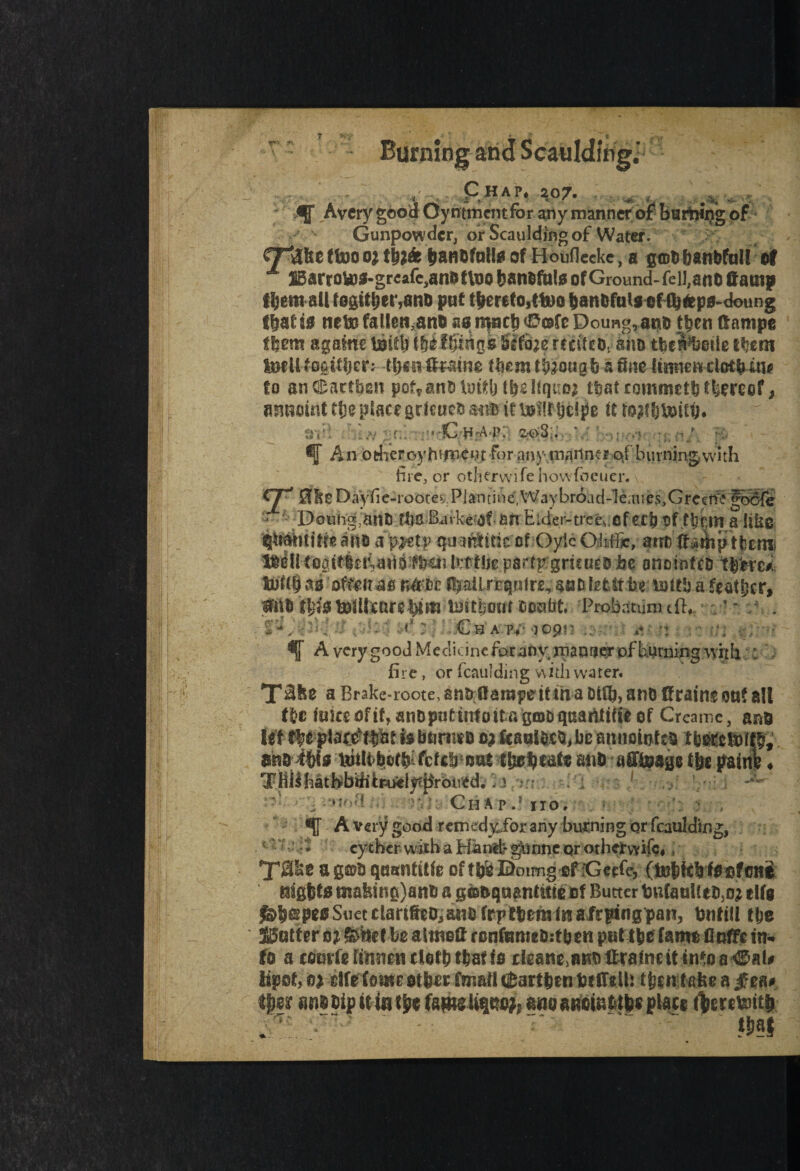 Burning and Scaulding.
CHAP. 207.
¶ A very good Oyntment for any manner of burning of
Gunpowder, or Scaulding of Water.
TAke two or thrée handfulls of Houslecke, a good handfull of
Barrows-grease, and two handfuls of Ground-fell, and stamp
them all together, and put thereto, two handfuls of shéeps-doung
that is new fallen, and as much Goose Doung, and then stampe
them againe with the things before recited, and then boile them
well together: then straine them through a fine linnen cloth in-
to an Earthen pot, and with the liquor that commeth thereof,
annoint the place grieued and it will helpe it forthwith.
CHAP. 208.
¶ An other oyhtment for any manner of burning with
fire, or otherwise how soeuer.
TAke Daysie-rootes, Plantine, Waybroad-leaues, Greene Goose
Doung, and the Barke of an Elder-tree, of ech of them a like
quantitie and a prety quantitie of Oyle Oliffe, and stamp them
well together, and then let the party grieued be anointed there-
with as often as néede shall require, and let it be with a feather,
and this will cure him without doubt. Probatum est.
CHAP. 209.
¶ A very good Medicine for any manner of burning with
fire, or scaulding with water.
TAke a Brake-roote, and stampe it in a dish, and straine out all
the iuice of it, and put into it a good quantitie of Creame, and
let the place that is burned or scaulded, be annointed therewith,
and this will both fetch out the heate and asswage the paine.
This hath bin truely proued.
CHAP. 110.
¶ A very good remedy for any burning or scaulding,
eyther with a Hand-gunne or otherwise.
TAke a good quantitie of the Doung of Geese, (which is of one
nights making) and a good quantitie of Butter vnsaulted, or else
Shéepes Suet clarified, and fry them in a frying pan, vntill the
Butter or Suet be almost consumed: then put the same stuffe in-
to a course linnen cloth that is cleane, and straine it into a Gal-
lipot, or else some other small Earthen vessell: then take a Fea-
ther and dip it in the same liquor, and anoint the place therewith
that